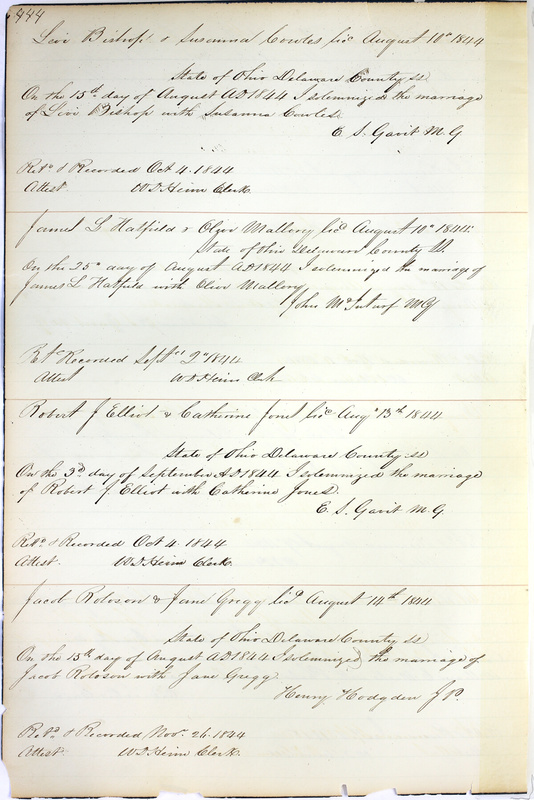 444
Levi Bishop & Susanna Cowles lic August 10th 1844
State of Ohio Delaware County ss
On the 15th day of August AD 1844 I solemnized the marriage
of Levi Bishop with Susanna Cowles.
E. S. Gavit M. G
Retd & Recorded Oct 4. 1844
Attest. W D Heim Clerk.
James L Hatfield & Oliver Mallory licd August 10th 1844.
State of Ohio Delaware County SS.
On the 25th day of August AD 1844 I solemnized the marriage of
James L Hatfield with Oliver Mallory
John McInturf MG
Retd Recorded Septer 2d 1844
Attest W D Heim Clerk
Robert J Elliot & Catherine Jones licd Augt 13th 1844
State of Ohio Delaware County ss
On the 3d day of September AD 1844 I solemnized the marriage
of Robert J. Elliot with Catherine Jones.
E. S. Gavit M. G.
Retd & Recorded Oct 4. 1844.
Attest. W D Heim Clerk.
Jacob Roloson & Jane Gregg licd August 14th 1844
State of Ohio Delaware County ss
On the 15th day of August AD 1844 I solemnized the marriage of
Jacob Roloson with Jane Gregg.
Henry Hodgden J P.
Retd & Recorded Novr. 26. 1844
Attest. W D Heim Clerk.